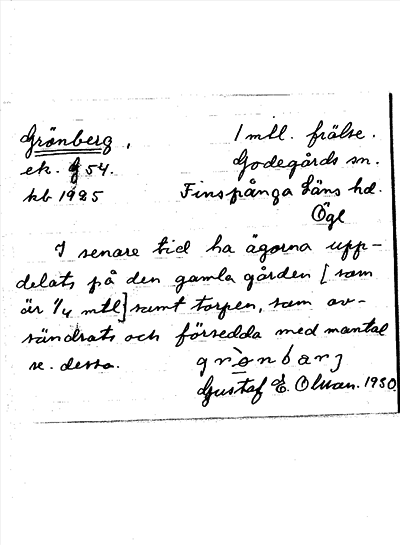 Grönberg, 1 mtl. frälse.
ek. g 54. Godegårds sn.
kb 1925 Finspånga Läns hd.
Ögl
I senare tid ha ägorna upp-
delats på den gamla gården [som
är 1/4 mtl] samt torpen, som av-
söndrats och försedda med mantal
se. dessa. grònbarj
Gustaf E. Olsson. 1930.